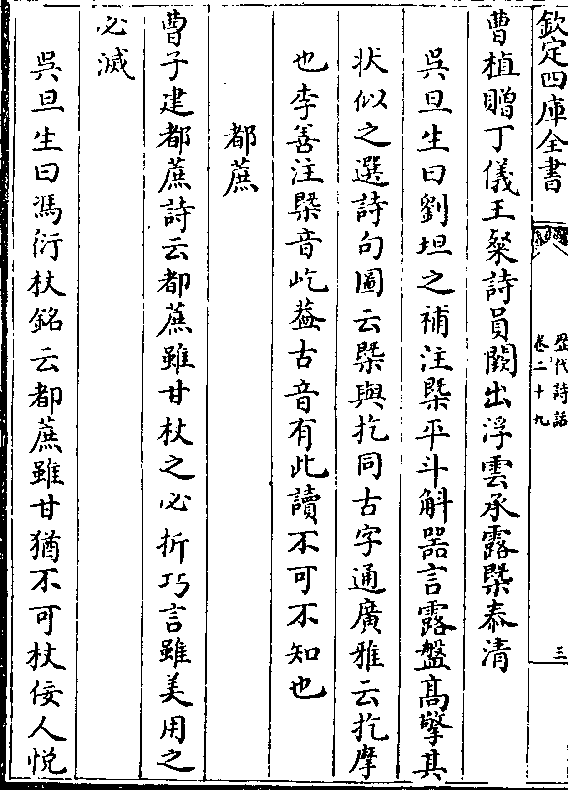 欽定四庫全書
歷代詩話
卷二十九
三
曹植贈丁儀王粲詩員闕出浮雲承露槩泰清
吳旦生曰劉坦之補注槩平斗斛器言露盤高擎其
狀似之選詩句圖云槩與扢同古字通廣雅云扢摩
也李善注槩音屹葢古音有此讀不可不知也
都蔗
曹子建都蔗詩云都蔗雖甘杖之必折巧言雖美用之
必滅
吳旦生曰馮衍杖銘云都蔗雖甘猶不可杖佞人悅